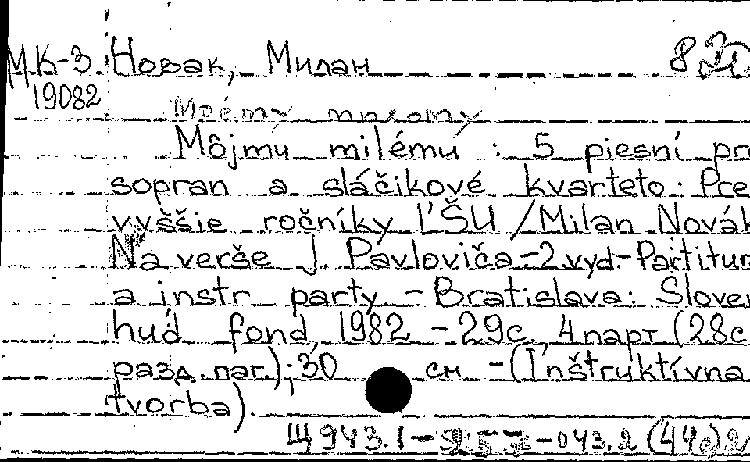 МК-3 Новак, Милан 8
19082
Môjmu milému : 5 piesní pr
sopran a sláčikové kvarteto. Pre
vyššie ročníky ĽŠU /Milan Novák
Na verše J. Pavloviča-2.vyd.-Partitur
a instr party - Bratislava: Sloven
hud fond 1982 -29с, 4 парт (28с
разд. паг); 30 см -(Inštruktívna
tvorba).
Щ 943.1- -043.2